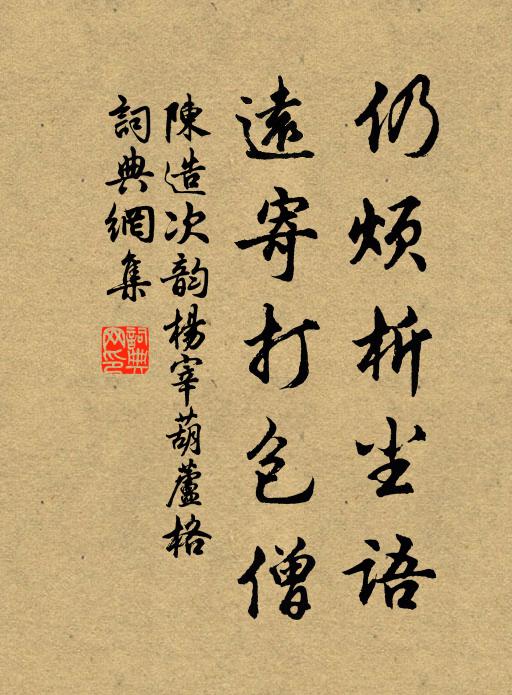 仍煩析尘语
遠寄打包僧
陳造次韵楊宰葫蘆格
詞典網集
詞典网印